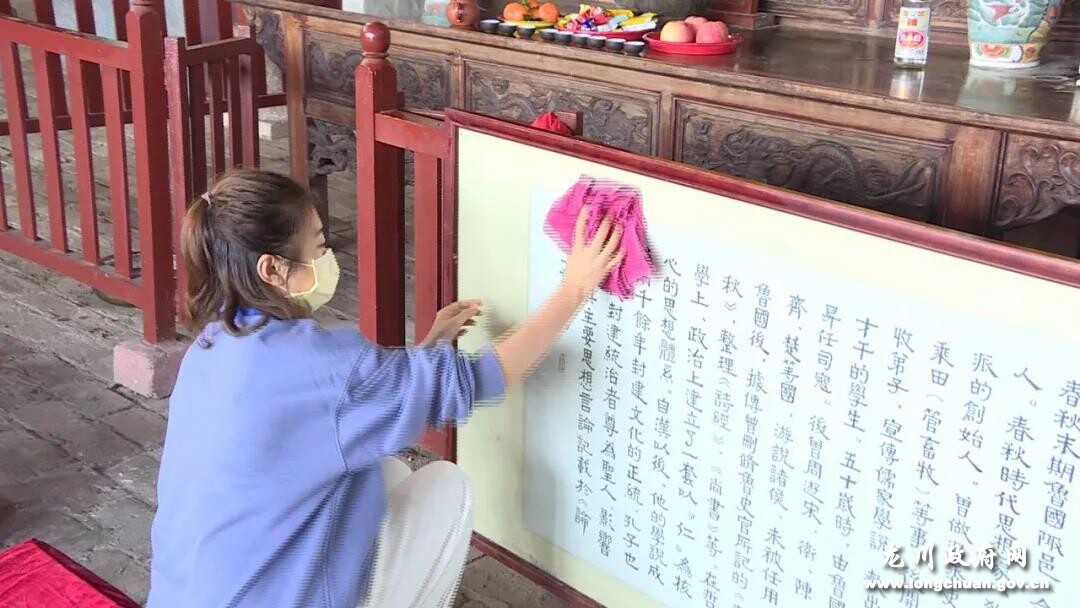 春秋末期魯國陬邑
人。春秋時代思想
派的創始人。曾做
乘田(管畜牧)等事
收弟子、宣傳儒家學說
才千的學生。五十歲時,由魯國
昇任司寇。後曾周遊宋、衛、陳
齊、楚等國,游說諸侯,未被任用
魯國後,據傳曾刪脩魯史官所記的《
秋》,整理《詩經》、《尚書》等,在哲
學上、政治上建立了一套以"仁"為核
心的思想體系,自漢以後,他的學說成
千餘年封建文化的正統,孔子也
封建統治者尊為聖人,影響
主要思想言論記載於《論
龙川政府网
www.longchuan.gov.cn